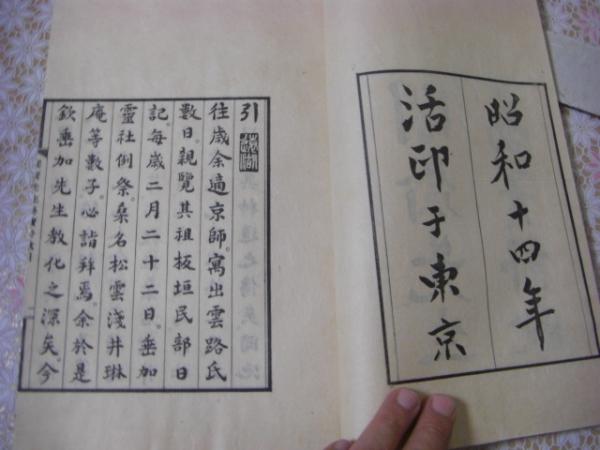 昭和十四年
活印于東京
引
往歳余適京師。寓出雲路氏
數日。親覽其祖板垣民部日
記。每歳二月二十二日。垂加
靈社例祭。桑名松雲淺井琳
庵等數子。必詣拜焉。余於是
欽垂加先生教化之深矣。今